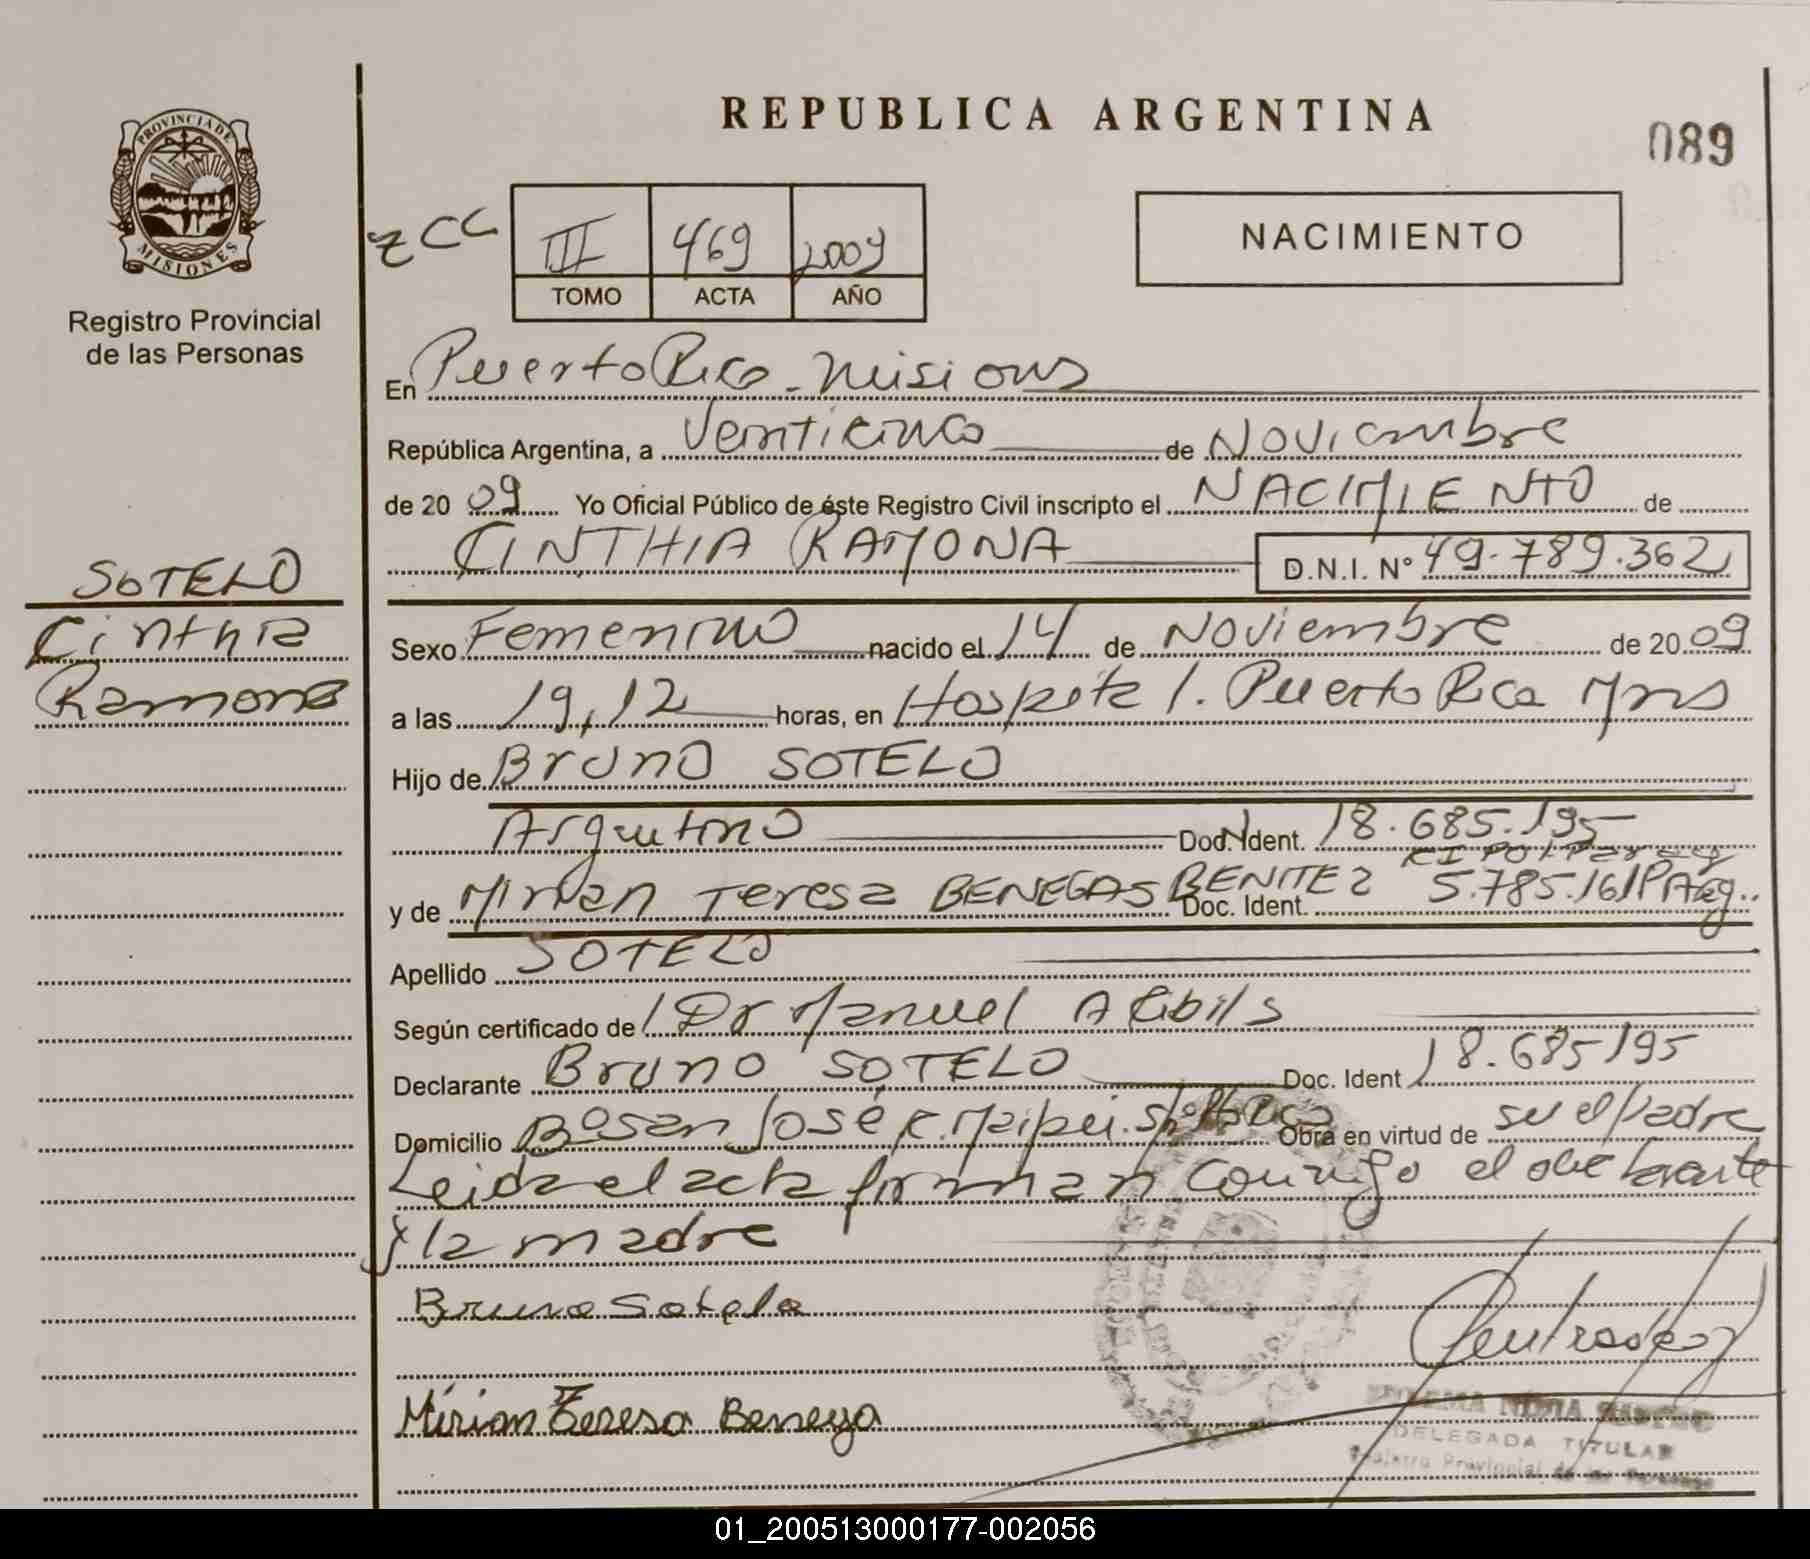 REPUBLICA ARGENTINA
089
PROVINCIA DE
MISIONES
Registro Provincial
de las Personas
III 469 2009
TOMO ACTA AÑO
NACIMIENTO
En Puerto Rico - Misiones
República Argentina, a Veinticinco de Noviembre
de 20 09 Yo Oficial Público de éste Registro Civil inscripto el NACIMIENTO de
CINTHIA RAMONA D.N.I. N° 49.789.362
SOTELO
Cinthia
Ramona
Sexo Femenino nacido el 14 de Noviembre de 20 09
a las 19,12 horas, en Hospital. Puerto Rico Mns
Hijo de Bruno SOTELO
Argentino Doc. Ident. 18.685.195
y de Mirian Teresa BENEGAS BENITEZ Doc. Ident. 5.785.161
Apellido SOTELO
Según certificado de Dr Manuel
Declarante Bruno SOTELO Doc. Ident 18.685195
Domicilio B° San José Obra en virtud de su el padre
Leida el acta firman conmigo el declarante
y la madre
Bruno Sotelo
Mirian Teresa Benega
DELEGADA TITULAR
Registro Provincial de las Personas
01_200513000177-002056